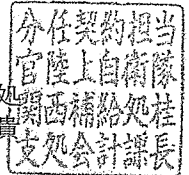 分任契約担当
官陸上自衛隊
関西補給処桂
支処会計課長
処
貴